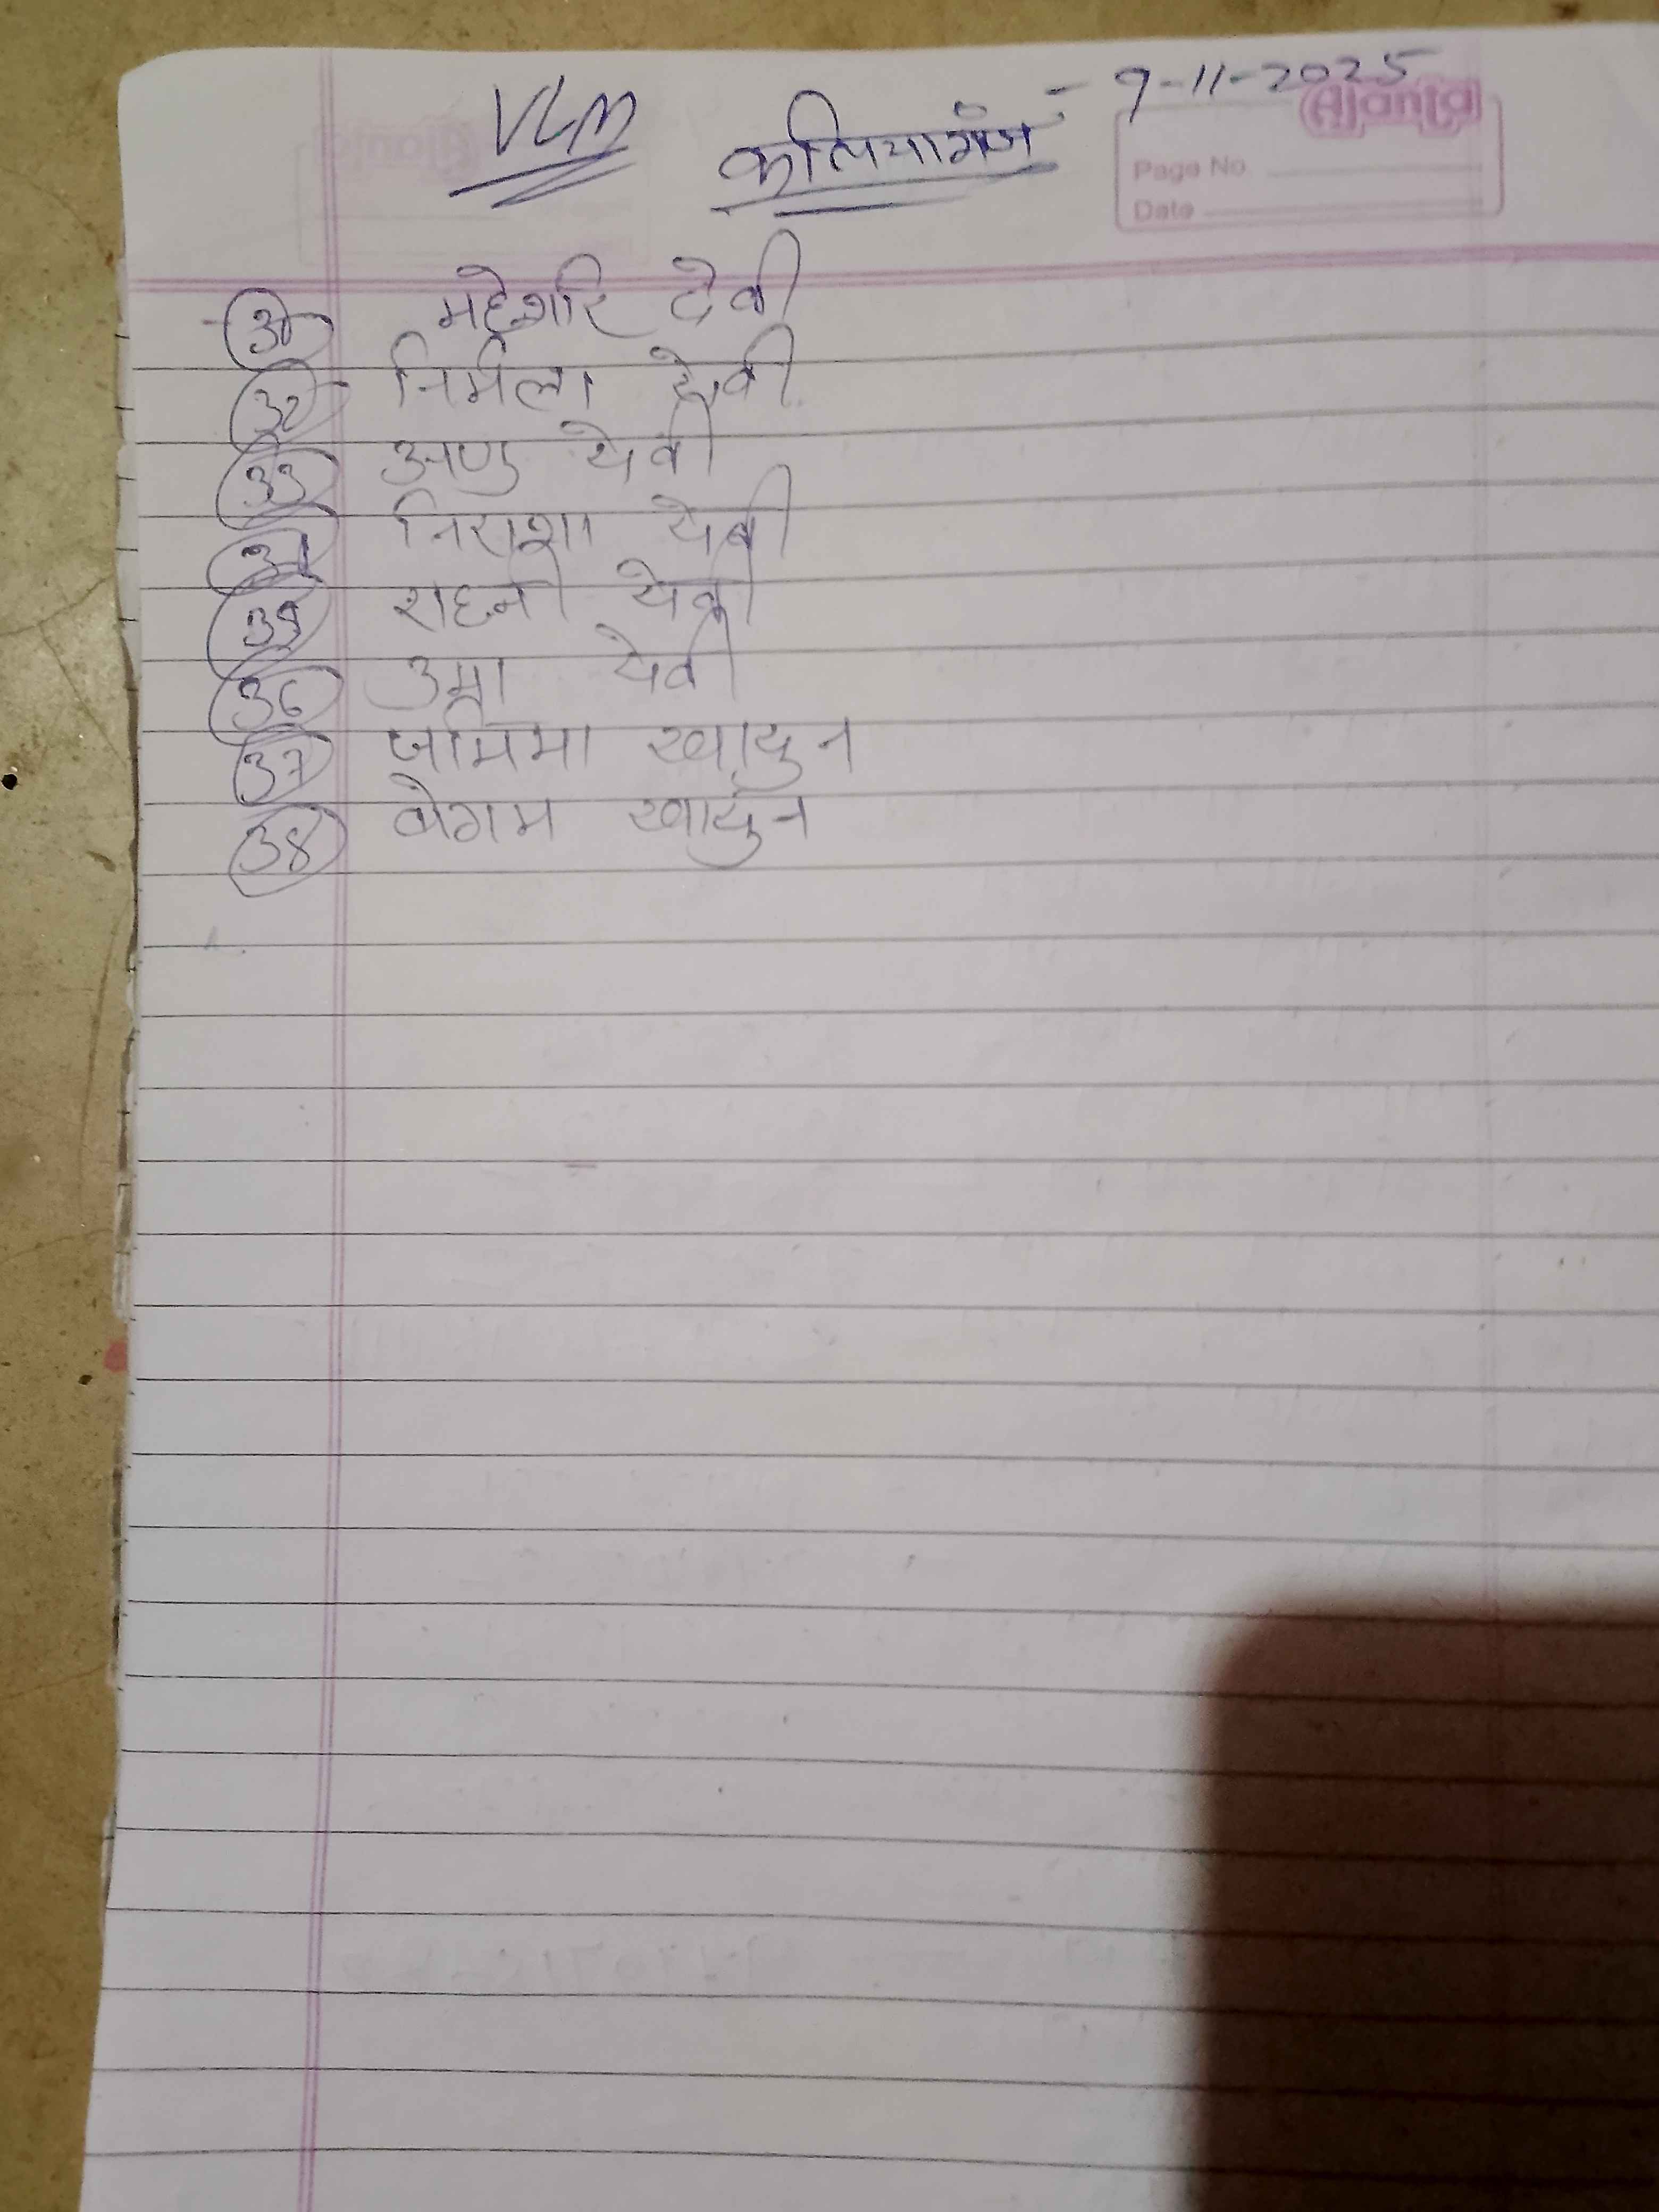 VLM कलियागंज - 9-11-2025
Ajanta
Page No.
Date
31 महेशरि देवी
32 निर्मला देवी
33 अणु देवी
34 निराशा देवी
35 देवी
36 उमा देवी
37 जमिमा खातुन
38 बेगम खातुन